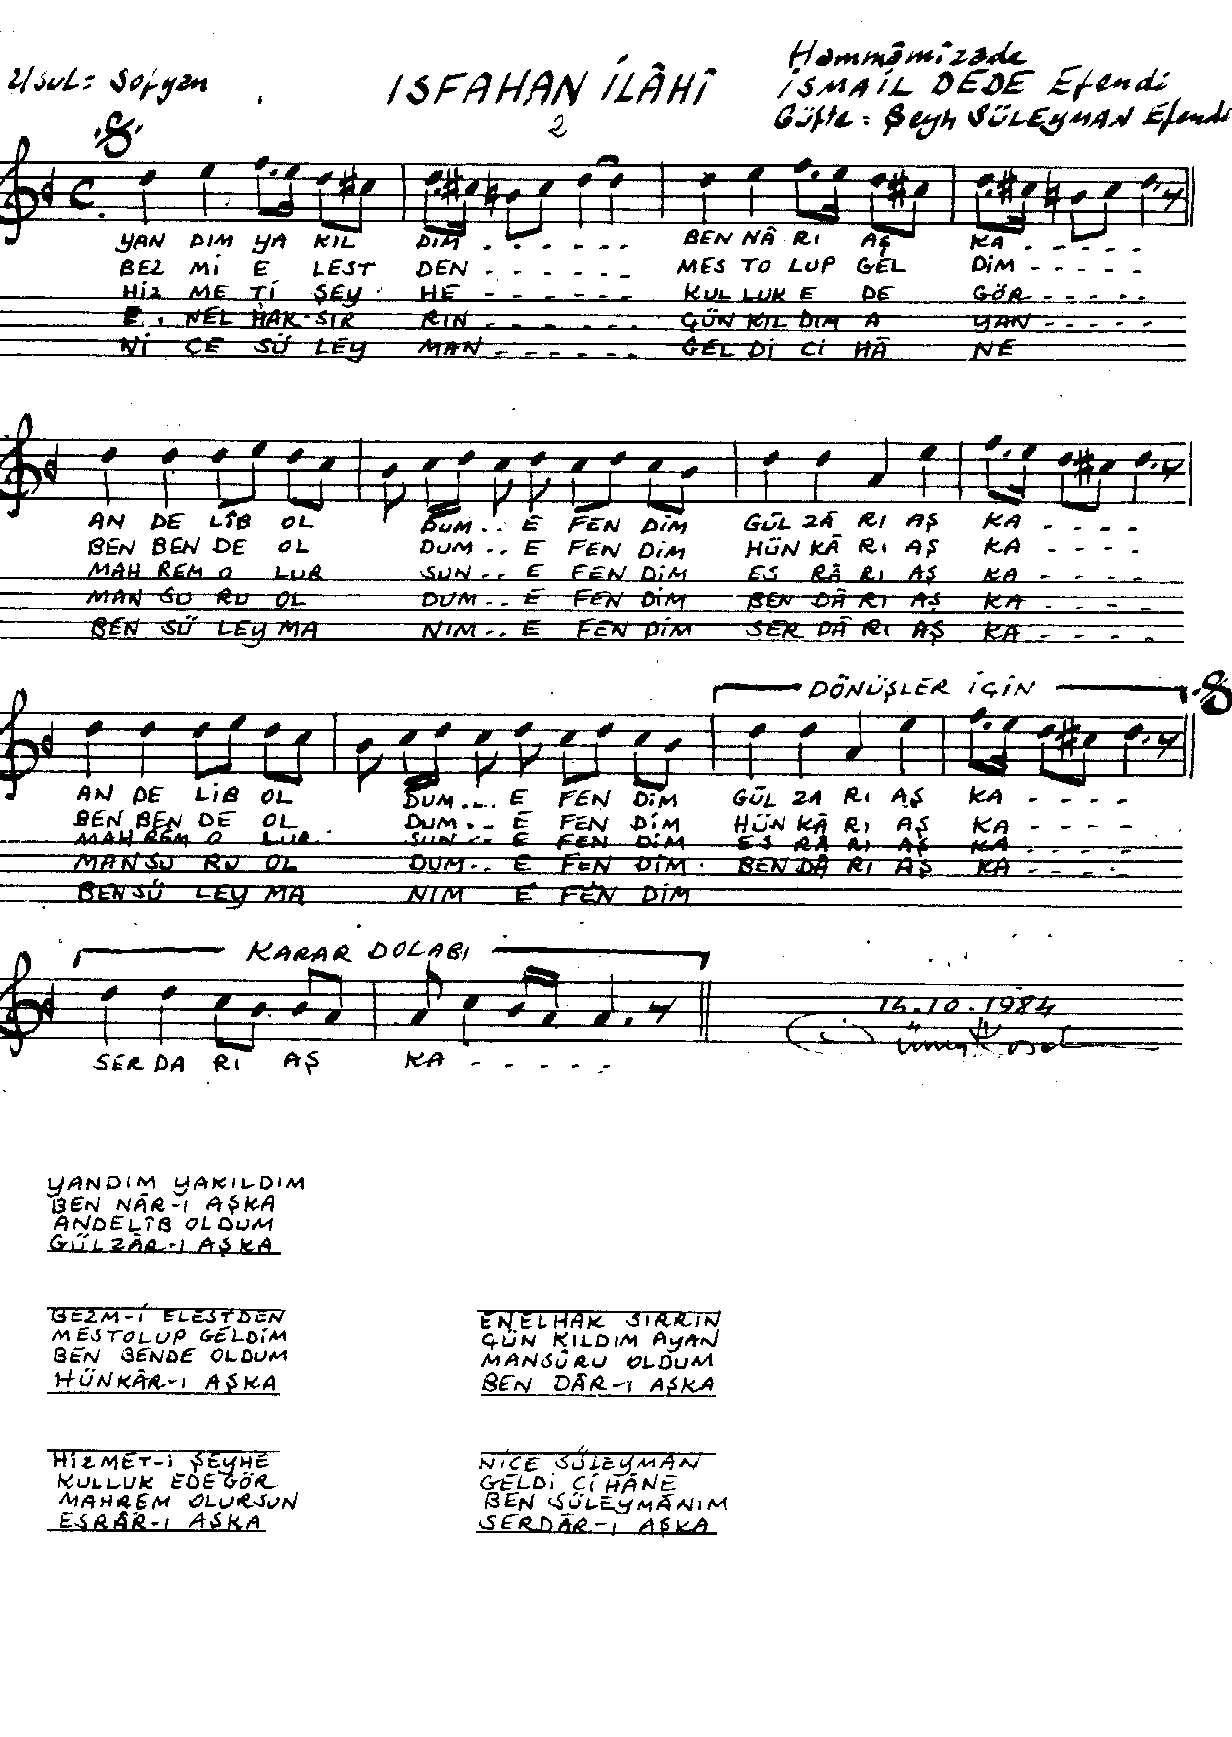 Usul = Sofyan
ISFAHAN İLÂHÎ
2
Hammâmîzade
İSMAİL DEDE Efendi
Güfte = Şeyh SÜLEYMAN Efendi
YAN DIM YA KIL DIM . - - - - - BEN NÂ RI AŞ KA . - - - - -
BEZ Mİ E LEST DEN - - - - - - MES TO LUP GEL DİM - - - - -
HİZ ME Tİ ŞEY HE - - - - - - KUL LUK E DE GÖR - - - - -
E . NEL HAK SIR RIN - - - - - - GÜN KIL DIM A YAN - - - - -
Nİ ÇE SÜ LEY MAN - - - - - - GEL Dİ Cİ HÂ NE
AN DE LÎB OL DUM . . E FEN DİM GÜL ZÂ RI AŞ KA - - - -
BEN BEN DE OL DUM . . E FEN DİM HÜN KÂ RI AŞ KA - - - -
MAH REM O LUR SUN . . E FEN DİM ES RÂ RI AŞ KA - - - -
MAN SU RU OL DUM . . E FEN DİM BEN DÂ RI AŞ KA - - - -
BEN SÜ LEY MA NIM . . E FEN DİM SER DÂ RI AŞ KA - - - -
DÖNÜŞLER İÇİN
AN DE LİB OL DUM . . . E FEN DİM GÜL ZA RI AŞ KA - - - -
BEN BEN DE OL DUM . . . E FEN DİM HÜN KÂ RI AŞ KA - - - -
MAH REM O LUR SUN . . E FEN DİM ES RÂ RI AŞ KA - - - -
MAN SU RU OL DUM . . E FEN DİM BEN DÂ RI AŞ KA - - - -
BEN SÜ LEY MA NIM E FEN DİM
KARAR DOLABI
SER DA RI AŞ KA - - - - -
14.10.1984
YANDIM YAKILDIM
BEN NÂR-I AŞKA
ANDELÎB OLDUM
GÜLZÂR-I AŞKA
BEZM-İ ELESTDEN
MESTOLUP GELDİM
BEN BENDE OLDUM
HÜNKÂR-I AŞKA
HİZMET-İ ŞEYHE
KULLUK EDEGÖR
MAHREM OLURSUN
ESRÂR-I AŞKA
ENELHAK SIRRIN
GÜN KILDIM AYAN
MANSÛRU OLDUM
BEN DÂR-I AŞKA
NİCE SÜLEYMÂN
GELDİ CİHÂNE
BEN SÜLEYMÂNIM
SERDÂR-I AŞKA